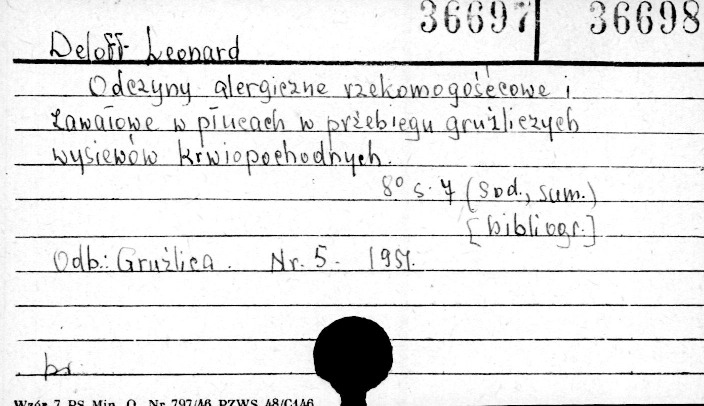 36697 36698
Deloff Leonard
Odczyny alergiczne rzekomogośćcowe i
zawałowe w płucach w przebiegu gruźliczych
wysiewów krwiopochodnych.
8° s. 7 (Sod., sum.)
[bibliogr.]
Odb.: Gruźlica. Nr. 5. 1951.
Wzór 7 PS Min. O. Nr 797/46 PZWS 48/C146